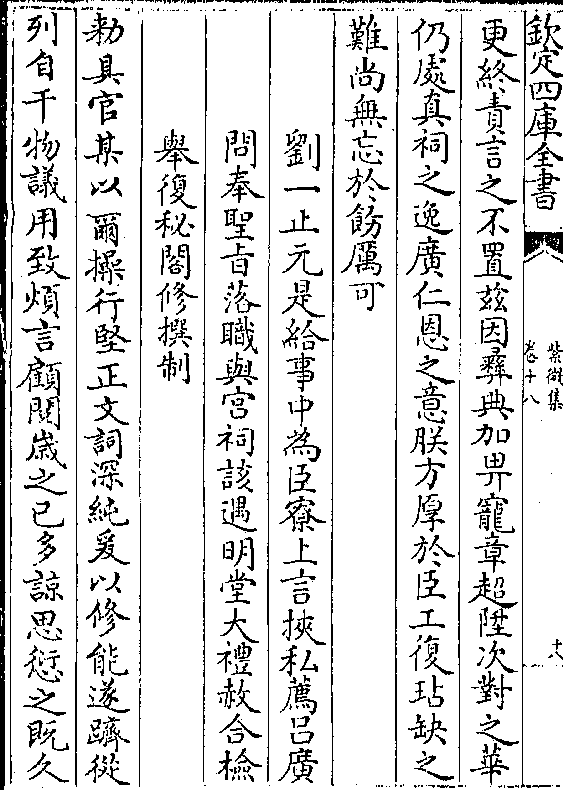 欽定四庫全書
紫微集
卷十八
十八
更終責言之不置兹因彛典加畀寵章超陞次對之華
仍處真祠之逸廣仁恩之意朕方厚於臣工復玷缺之
難尚無忘於飭厲可
劉一止元是給事中為臣寮上言挾私薦吕廣
問奉聖㫖落職與宫祠該遇明堂大禮赦合檢
舉復秘閣修撰制
勅具官某以爾操行堅正文詞深純爰以修能遂躋從
列自干物議用致煩言顧閲歳之已多諒思愆之既久